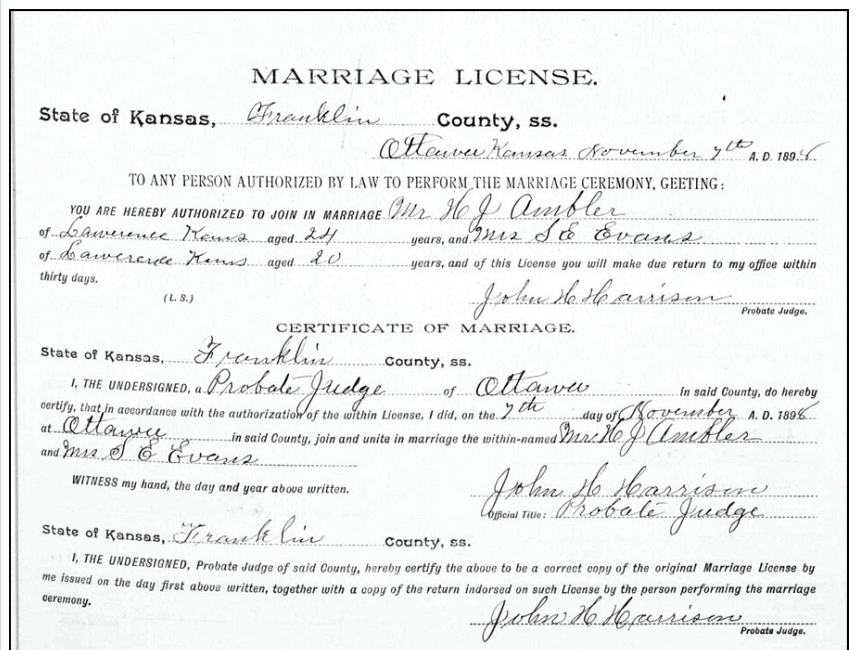 MARRIAGE LICENSE.
State of Kansas, Franklin County, ss.
Ottawa Kansas November 7th A. D. 1898
TO ANY PERSON AUTHORIZED BY LAW TO PERFORM THE MARRIAGE CEREMONY, GEETING:
YOU ARE HEREBY AUTHORIZED TO JOIN IN MARRIAGE Mr H J Ambler
of Lawerence Kans aged 24 years, and Mrs S E Evans
of Lawerence Kans aged 20 years, and of this License you will make due return to my office within
thirty days.
(L. S.) John H Harrison
Probate Judge.
CERTIFICATE OF MARRIAGE.
State of Kansas, Franklin County, ss.
I, THE UNDERSIGNED, a Probate Judge of Ottawa in said County, do hereby
certify, that in accordance with the authorization of the within License, I did, on the 7th day of November A. D. 1898
at Ottawa in said County, join and unite in marriage the within-named Mr. H J Ambler
and Mrs S E Evans
WITNESS my hand, the day and year above written. John H Harrison
Official Title: Probate Judge
State of Kansas, Franklin County, ss.
I, THE UNDERSIGNED, Probate Judge of said County, hereby certify the above to be a correct copy of the original Marriage License by
me issued on the day first above written, together with a copy of the return indorsed on such License by the person performing the marriage
ceremony. John H Harrison
Probate Judge.